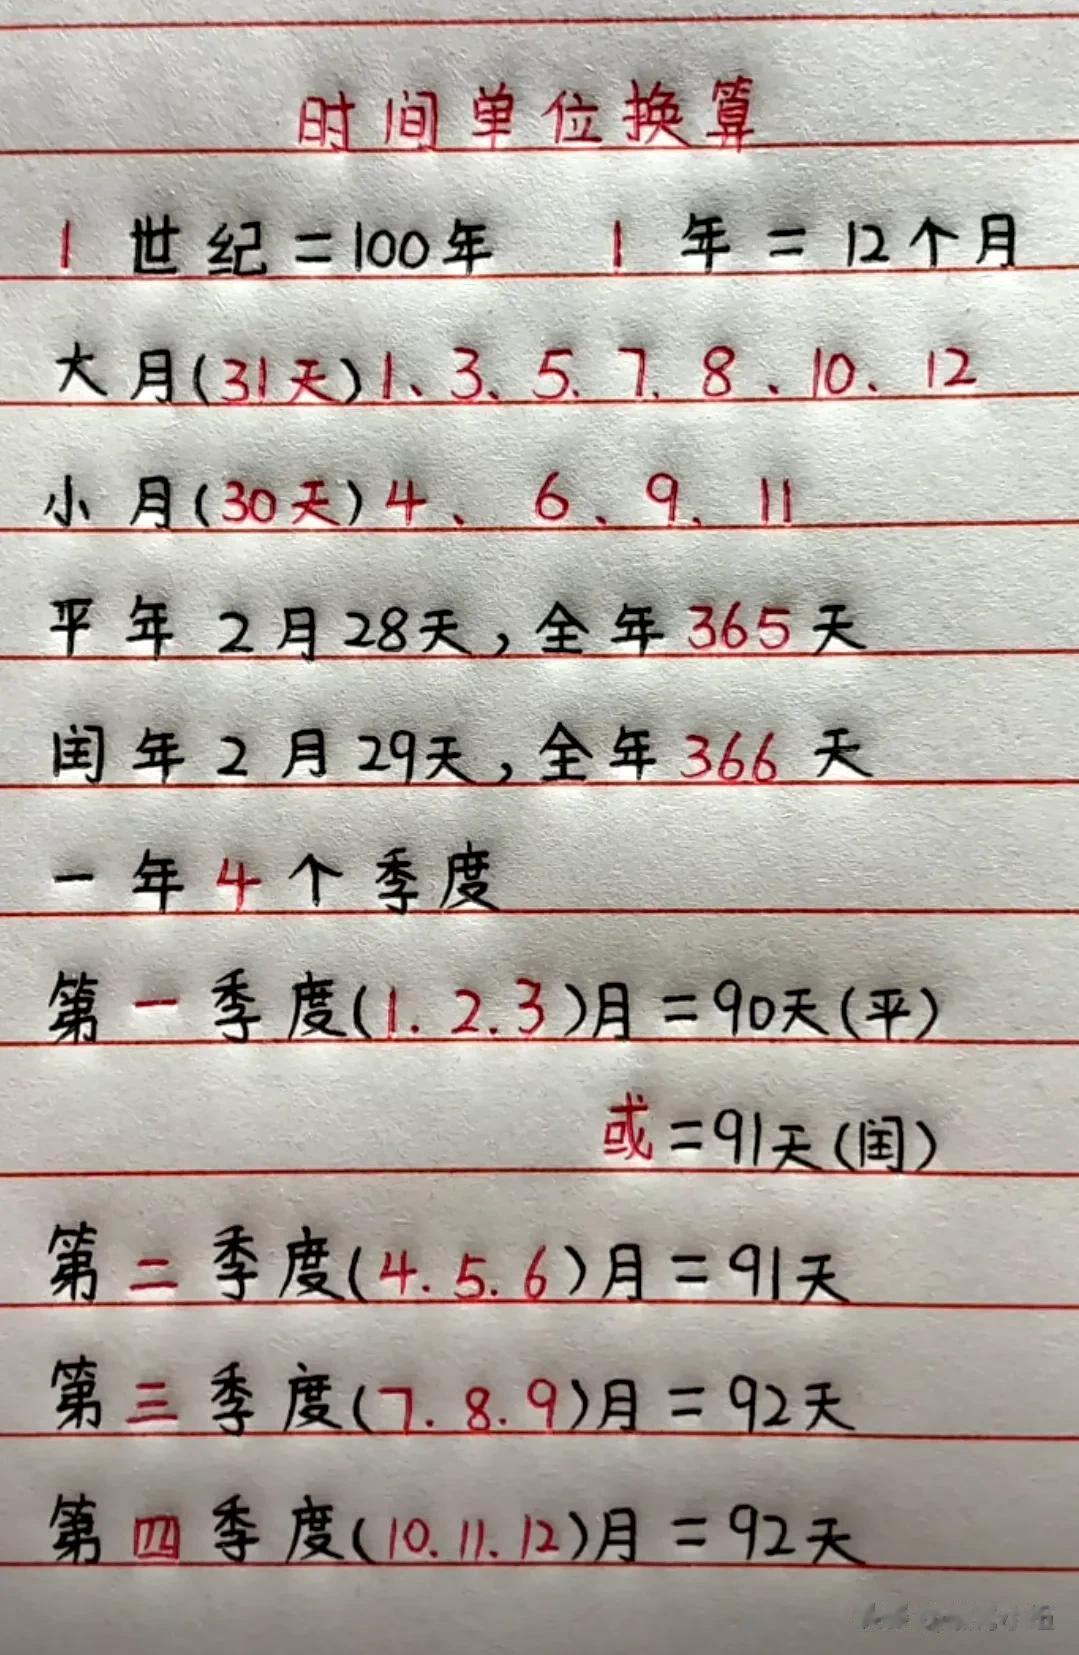 时间单位换算
1世纪=100年 1年=12个月
大月(31天)1、3、5、7、8、10、12
小月(30天)4、6、9、11
平年2月28天,全年365天
闰年2月29天,全年366天
一年4个季度
第一季度(1.2.3)月=90天(平)
或=91天(闰)
第二季度(4.5.6)月=91天
第三季度(7.8.9)月=92天
第四季度(10.11.12)月=92天